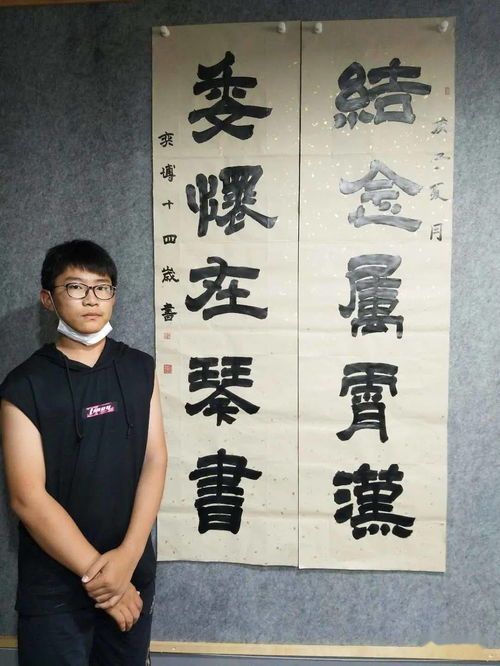 庚子夏月
結念属霄漢
委懷在琴書
奕博十四歲書